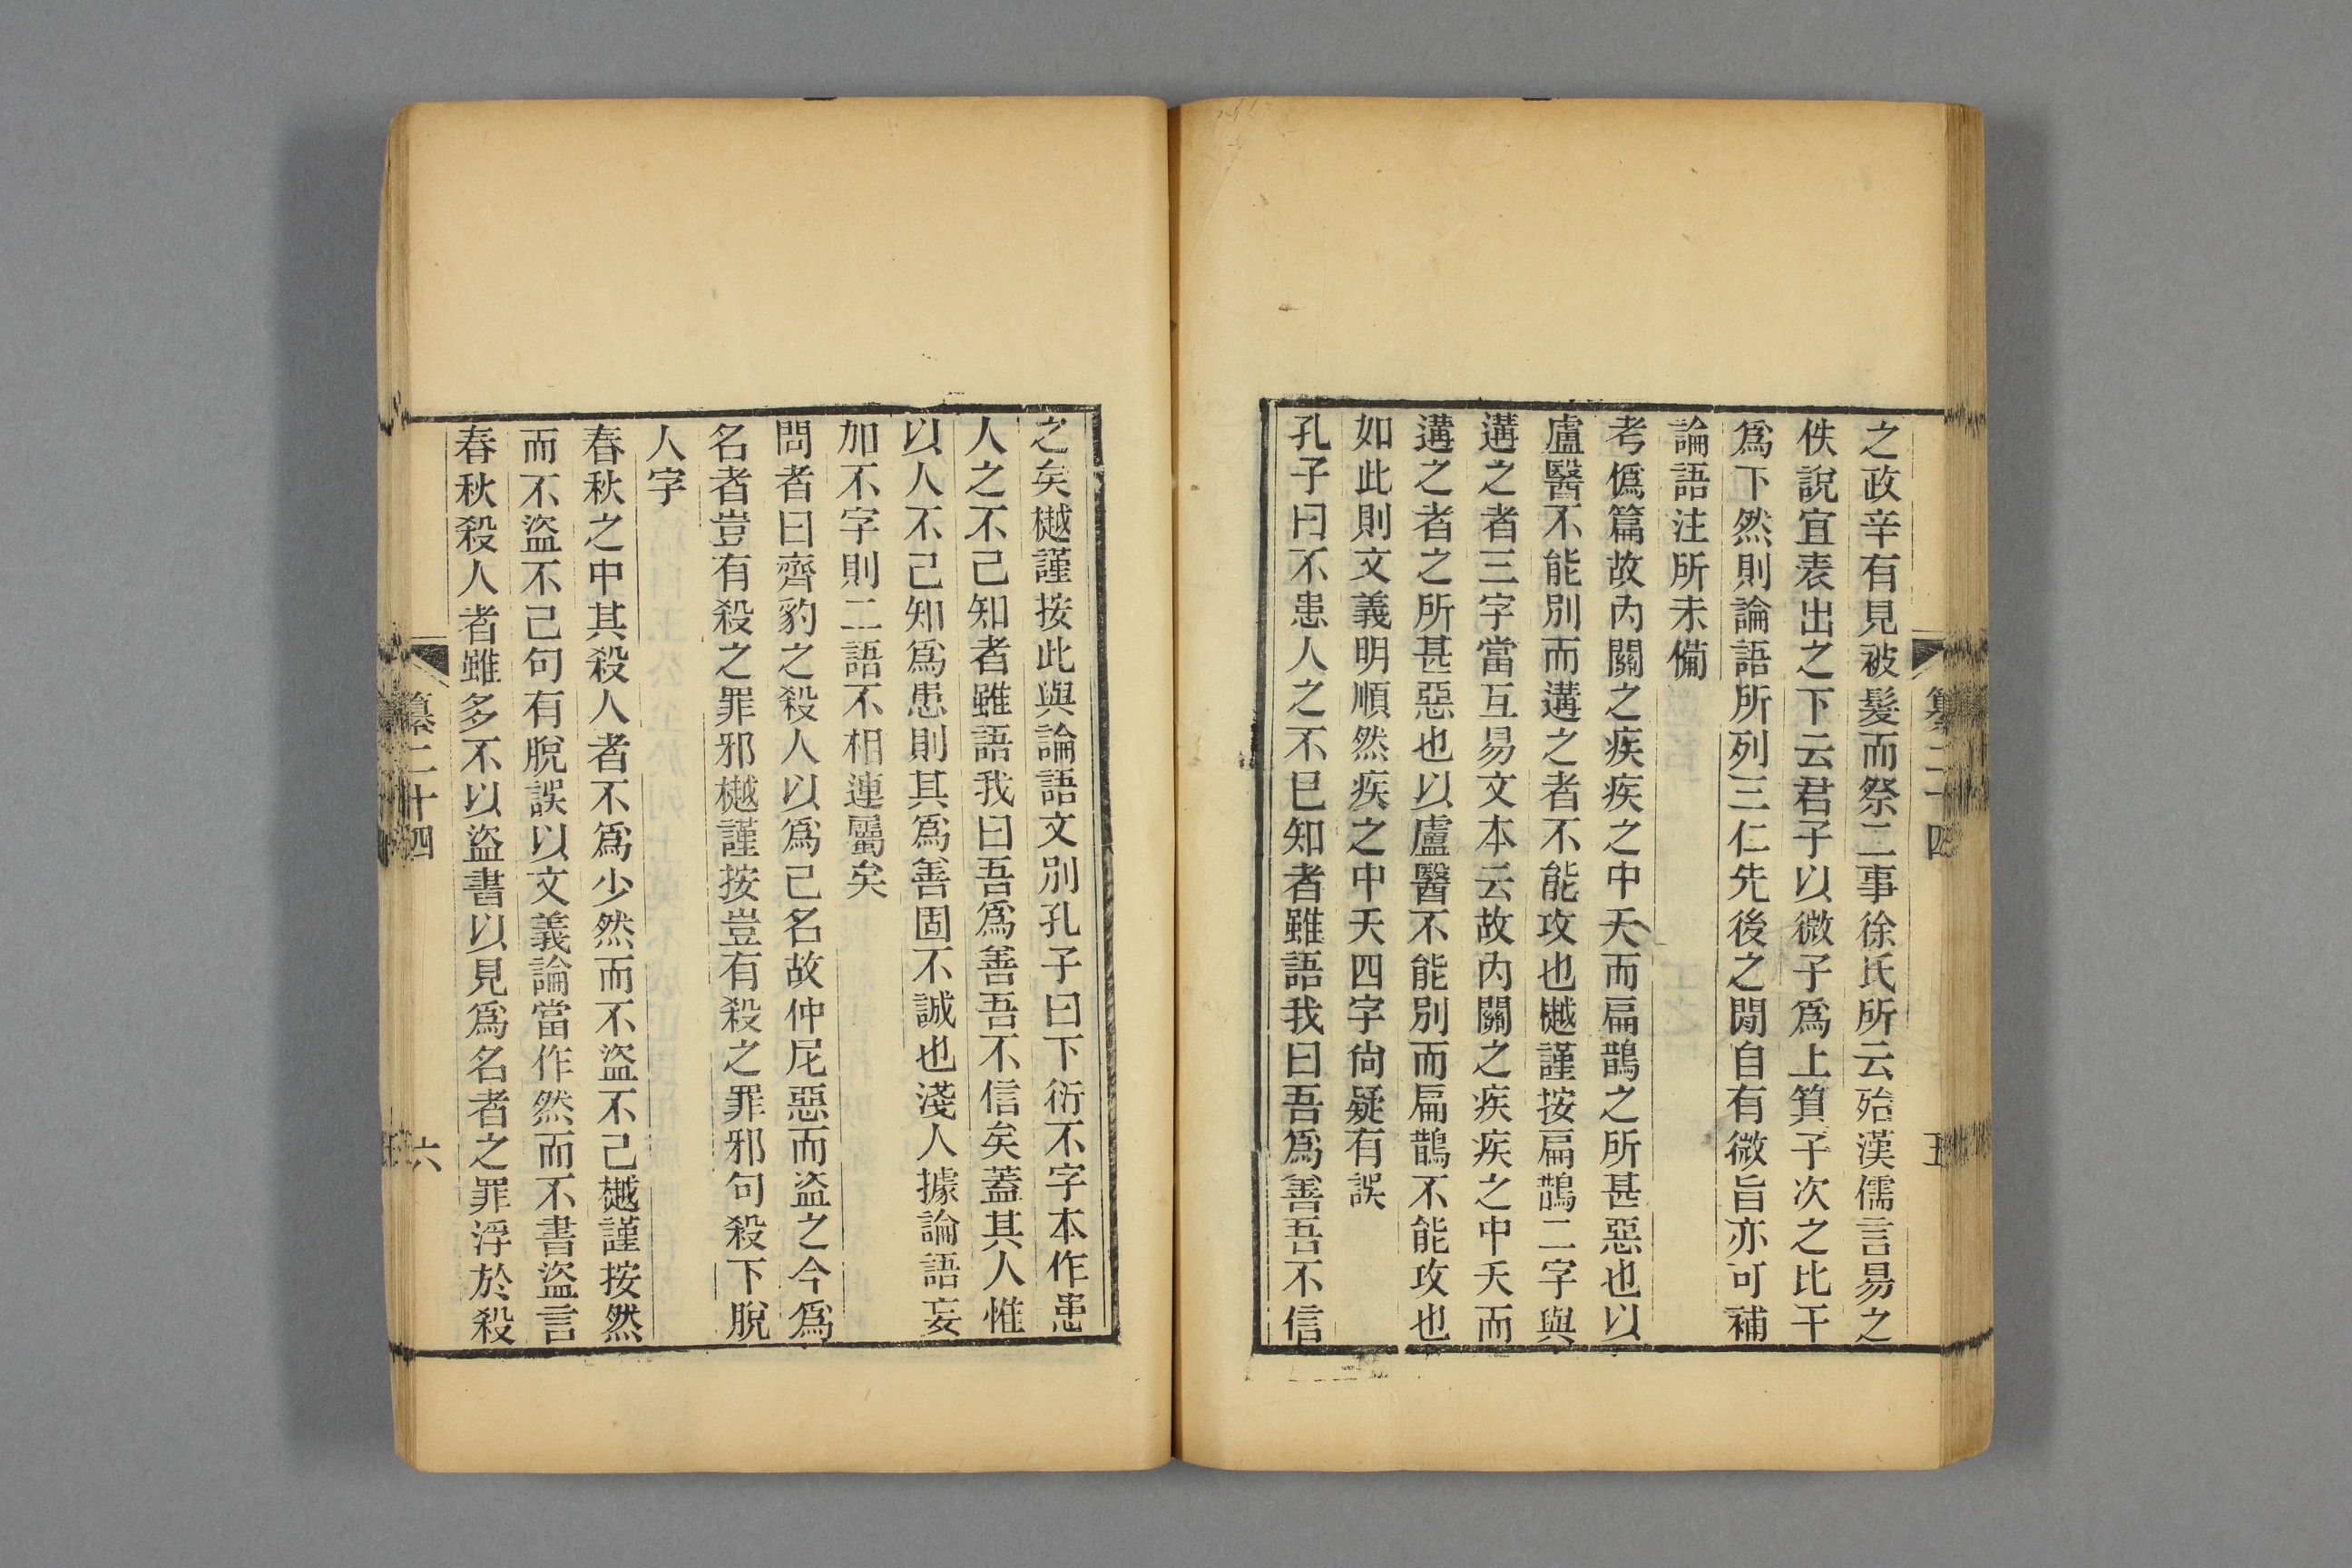 之政辛有見被髮而祭二事徐氏所云殆漢儒言易之
佚說宜表出之下云君子以微子爲上箕子次之比干
爲下然則論語所列三仁先後之閒自有微旨亦可補
論語注所未備
考僞篇故內關之疾疾之中夭而扁鵲之所甚惡也以
盧醫不能別而遘之者不能攻也樾謹按扁鵲二字與
遘之者三字當互易文本云故內關之疾疾之中夭而
遘之者之所甚惡也以盧醫不能別而扁鵲不能攻也
如此則文義明順然疾之中夭四字尙疑有誤
孔子曰不患人之不已知者雖語我曰吾爲善吾不信
纂二十四
五
之矣樾謹按此與論語文別孔子曰下衍不字本作患
人之不己知者雖語我曰吾爲善吾不信矣蓋其人惟
以人不己知爲患則其爲善固不誠也淺人據論語妄
加不字則二語不相連屬矣
問者曰齊豹之殺人以爲己名故仲尼惡而盜之今爲
名者豈有殺之罪邪樾謹按豈有殺之罪邪句殺下脫
人字
春秋之中其殺人者不爲少然而不盜不己樾謹按然
而不盜不己句有脫誤以文義論當作然而不書盜言
春秋殺人者雖多不以盜書以見爲名者之罪浮於殺
纂二十四
六